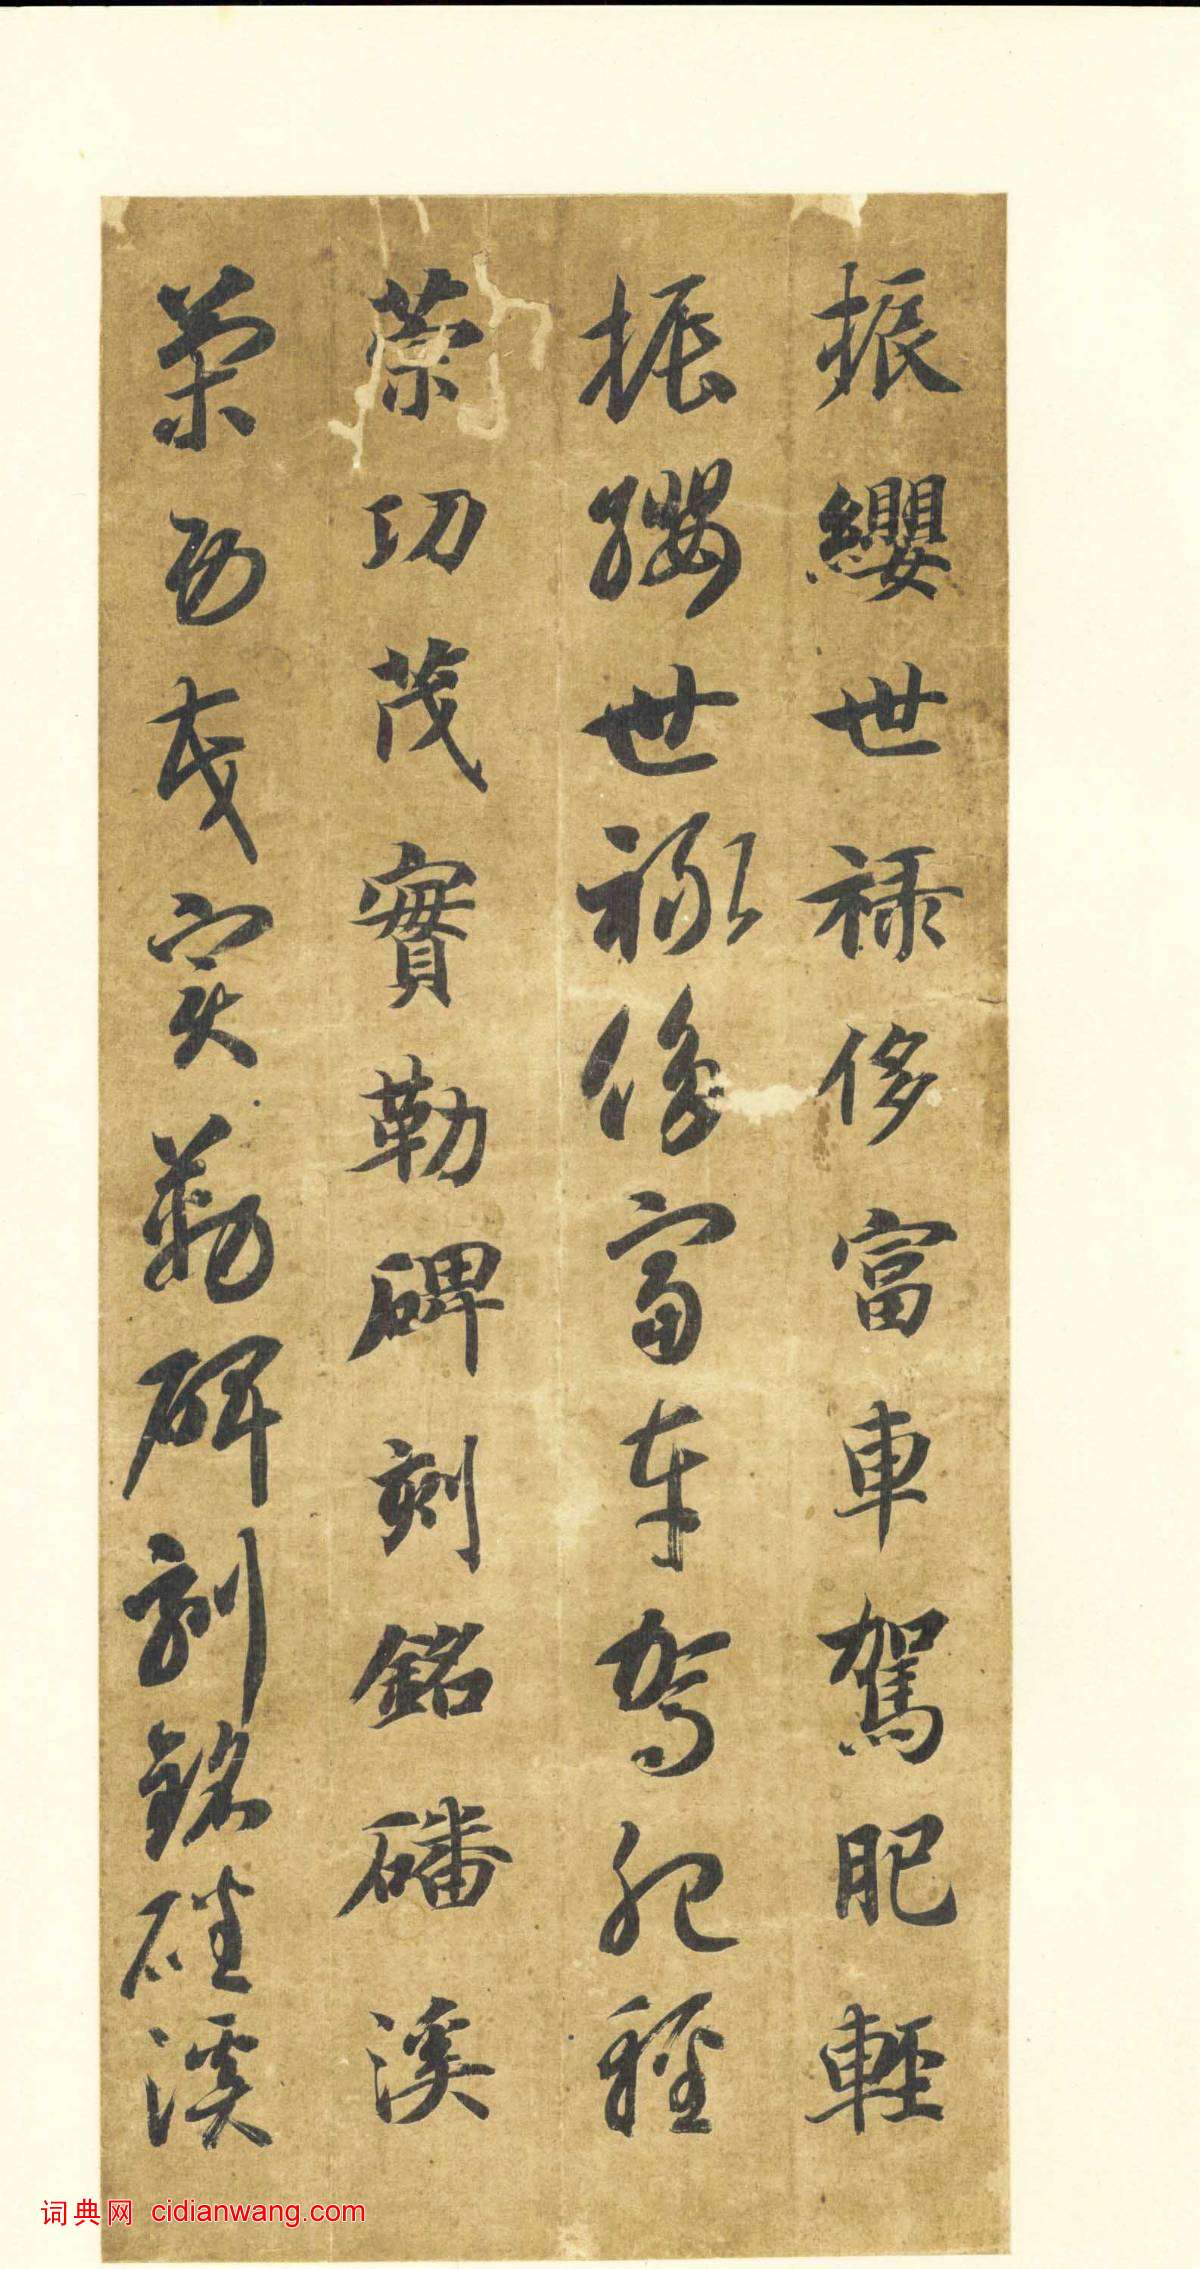 振纓世禄侈富車駕肥輕
振纓世祿侈富車駕肥輕
策功茂實勒碑刻銘磻溪
策功茂實勒碑刻銘磻溪
词典网 cidianwang.com